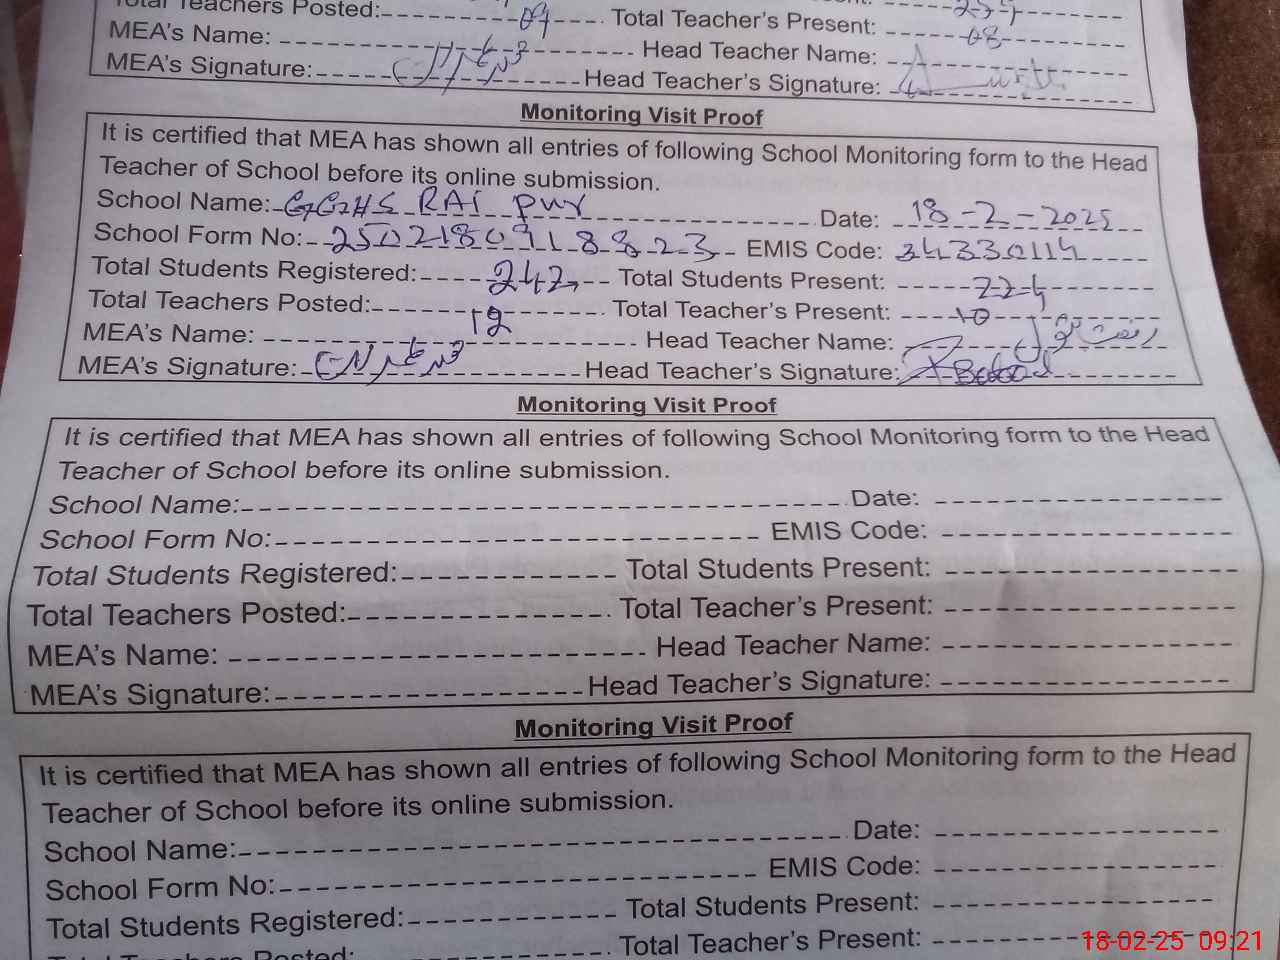 Total Teachers Posted: 09 Total Teacher's Present: 08
MEA's Name: Head Teacher Name:
MEA's Signature: Head Teacher's Signature:
Monitoring Visit Proof
It is certified that MEA has shown all entries of following School Monitoring form to the Head
Teacher of School before its online submission.
School Name: GGHS RAI PUR Date: 18-2-2025
School Form No: 2502180918823 EMIS Code: 34330114
Total Students Registered: 242 Total Students Present: 224
Total Teachers Posted: 12 Total Teacher's Present: 10
MEA's Name: Head Teacher Name:
MEA's Signature: Head Teacher's Signature:
Monitoring Visit Proof
It is certified that MEA has shown all entries of following School Monitoring form to the Head
Teacher of School before its online submission.
School Name: Date:
School Form No: EMIS Code:
Total Students Registered: Total Students Present:
Total Teachers Posted: Total Teacher's Present:
MEA's Name: Head Teacher Name:
MEA's Signature: Head Teacher's Signature:
Monitoring Visit Proof
It is certified that MEA has shown all entries of following School Monitoring form to the Head
Teacher of School before its online submission.
School Name: Date:
School Form No: EMIS Code:
Total Students Registered: Total Students Present:
Total Teachers Posted: Total Teacher's Present:
18-02-25 09:21